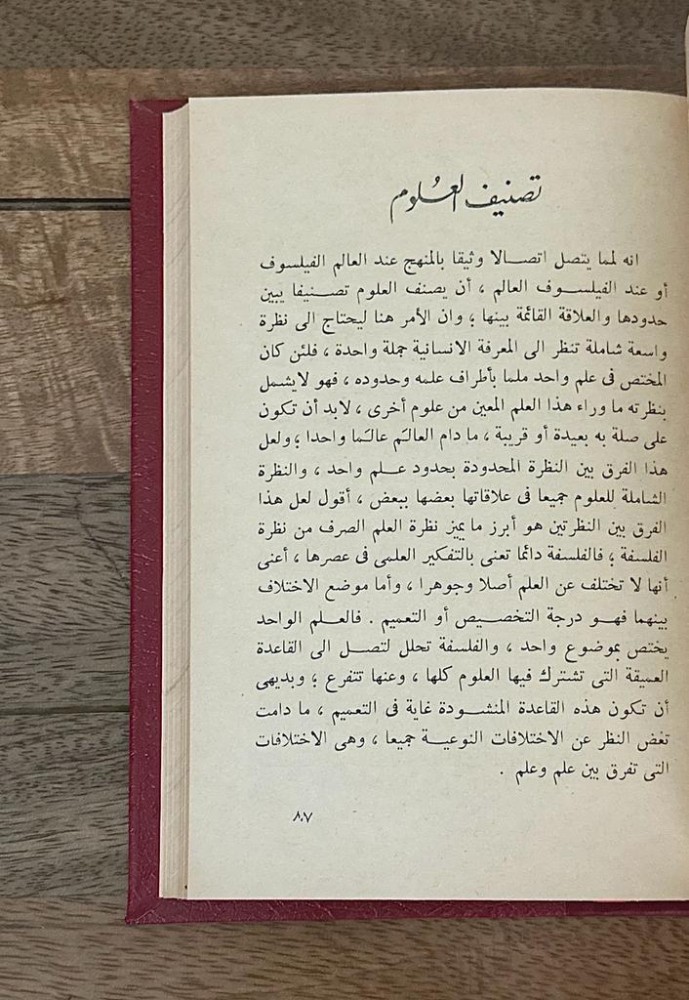 تصنيف العُلوم
انه لما يتصل اتصـالا وثيقا بالمنهج عند العالم الفيلسوف
أو عند الفيلسـوف العالم ، أن يصنف العلوم تصـنيفا يبين
حدودها والعلاقة القائمة بينها ؛ وان الأمر هنا ليحتاج الى نظرة
واسعة شاملة تنظر الى المعرفة الانسانية جملة واحدة ، فلئن كان
المختص فى علم واحد ملما بأطراف علمه وحدوده ، فهو لايشمل
بنظرته ما وراء هذا العلم المعين من علوم أخرى ، لابد أن تكون
على صلة به بعيدة أو قريبة ، ما دام العالَم عالَما واحدا ؛ ولعل
هذا الفرق بين النظرة المحدودة بحدود علـم واحد ، والنظرة
الشاملة للعلوم جميعا فى علاقاتها بعضها ببعض ، أقول لعل هذا
الفرق بين النظرتين هو أبرز ما يميز نظرة العلم الصرف من نظرة
الفلسفة ؛ فالفلسفة دائما تعنى بالتفكير العلمى فى عصرها ، أعنى
أنها لا تختلف عن العلم أصلا وجوهرا ، وأما موضع الاختلاف
بينهما فهـو درجة التخصـيص أو التعميم . فالعـلم الواحد
يختص بموضوع واحد ، والفلسفة تحلل لتصـل الى القاعدة
العميقة التى تشترك فيها العلوم كلها ، وعنها تتفرع ؛ وبديهى
أن تكون هذه القاعدة المنشـودة غاية فى التعميم ، ما دامت
تغض النظر عن الاختلافات النوعيـة جميعا ، وهى الاختلافات
التى تفرق بين علم وعلم .
٨٠٧